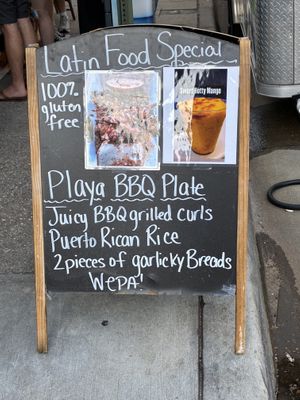 Latin Food Special
100%
gluten
free
Sweet Hotty Mango
Playa BBQ Plate
Juicy BBQ grilled curls
Puerto Rican Rice
2 pieces of garlicky Breads
WEPA!